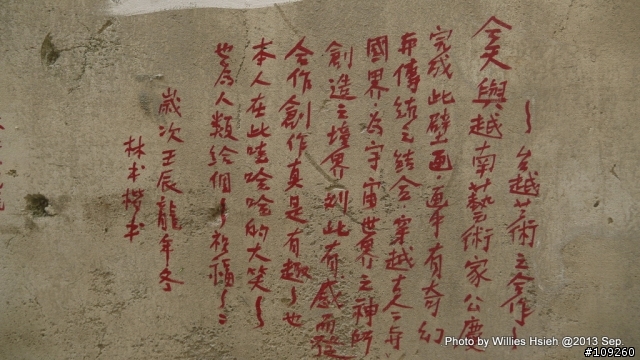 ～台越艺術之合作～
今天與越南藝術家公慶
完成此壁画.画中有奇幻
本傳統之結合.穿越古人二舟
國界.為宇宙世界之神所
創造之境界.刻此有感而發
合作創作真是有趣～也
本人在此哇哈哈的大笑～
也為人類給個～祝福～
歲次壬辰龍年冬
林木楷书
Photo by Willies Hsieh @2013 Sep.
#109260